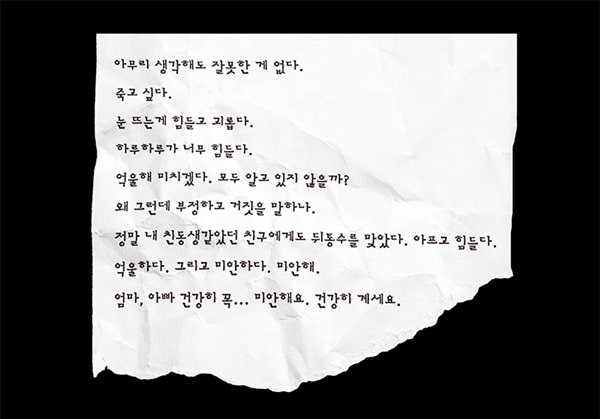 아무리 생각해도 잘못한 게 없다.
죽고 싶다.
눈 뜨는게 힘들고 괴롭다.
하루하루가 너무 힘들다.
억울해 미치겠다. 모두 알고 있지 않을까?
왜 그런데 부정하고 거짓을 말하나.
정말 내 친동생같았던 친구에게도 뒤통수를 맞았다. 아프고 힘들다.
억울하다. 그리고 미안하다. 미안해.
엄마, 아빠 건강히 꼭... 미안해요. 건강히 계세요.